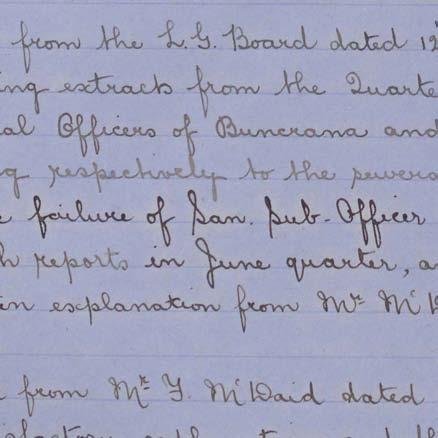 from the L. G. Board dated 12
ing extracts from the Quarte
al Officers of Buncrana and
g respectively to the sewera
failure of San. Sub-Officer
h reports in June quarter, a
in explanation from Mr. McD
from Mr. F. McDaid dated